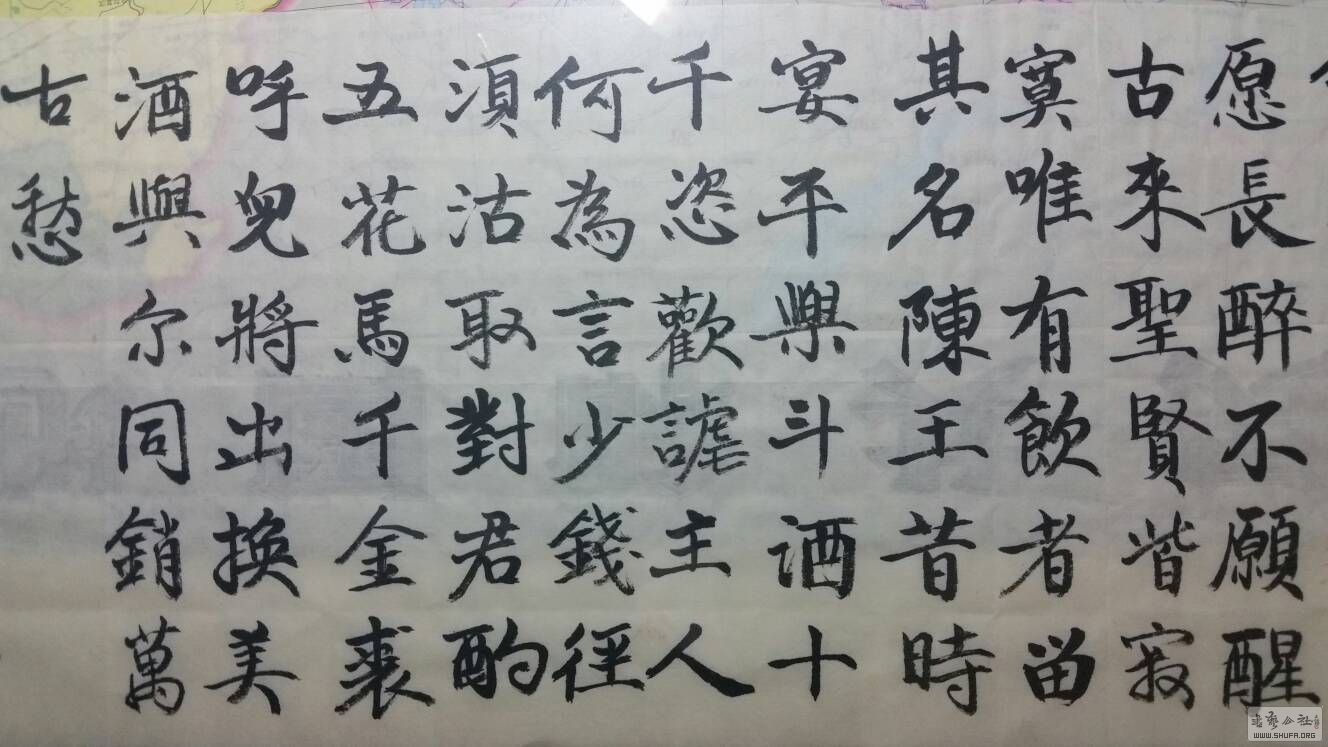 愿長醉不願醒
古來聖賢皆寂
寞唯有飲者畄
其名陳王昔時
宴平樂斗酒十
千恣歡謔主人
何為言少錢徑
須沽取對君酌
五花馬千金裘
呼兒將出換美
酒與尔同銷萬
古愁
書藝公社
WWW.SHUFA.ORG